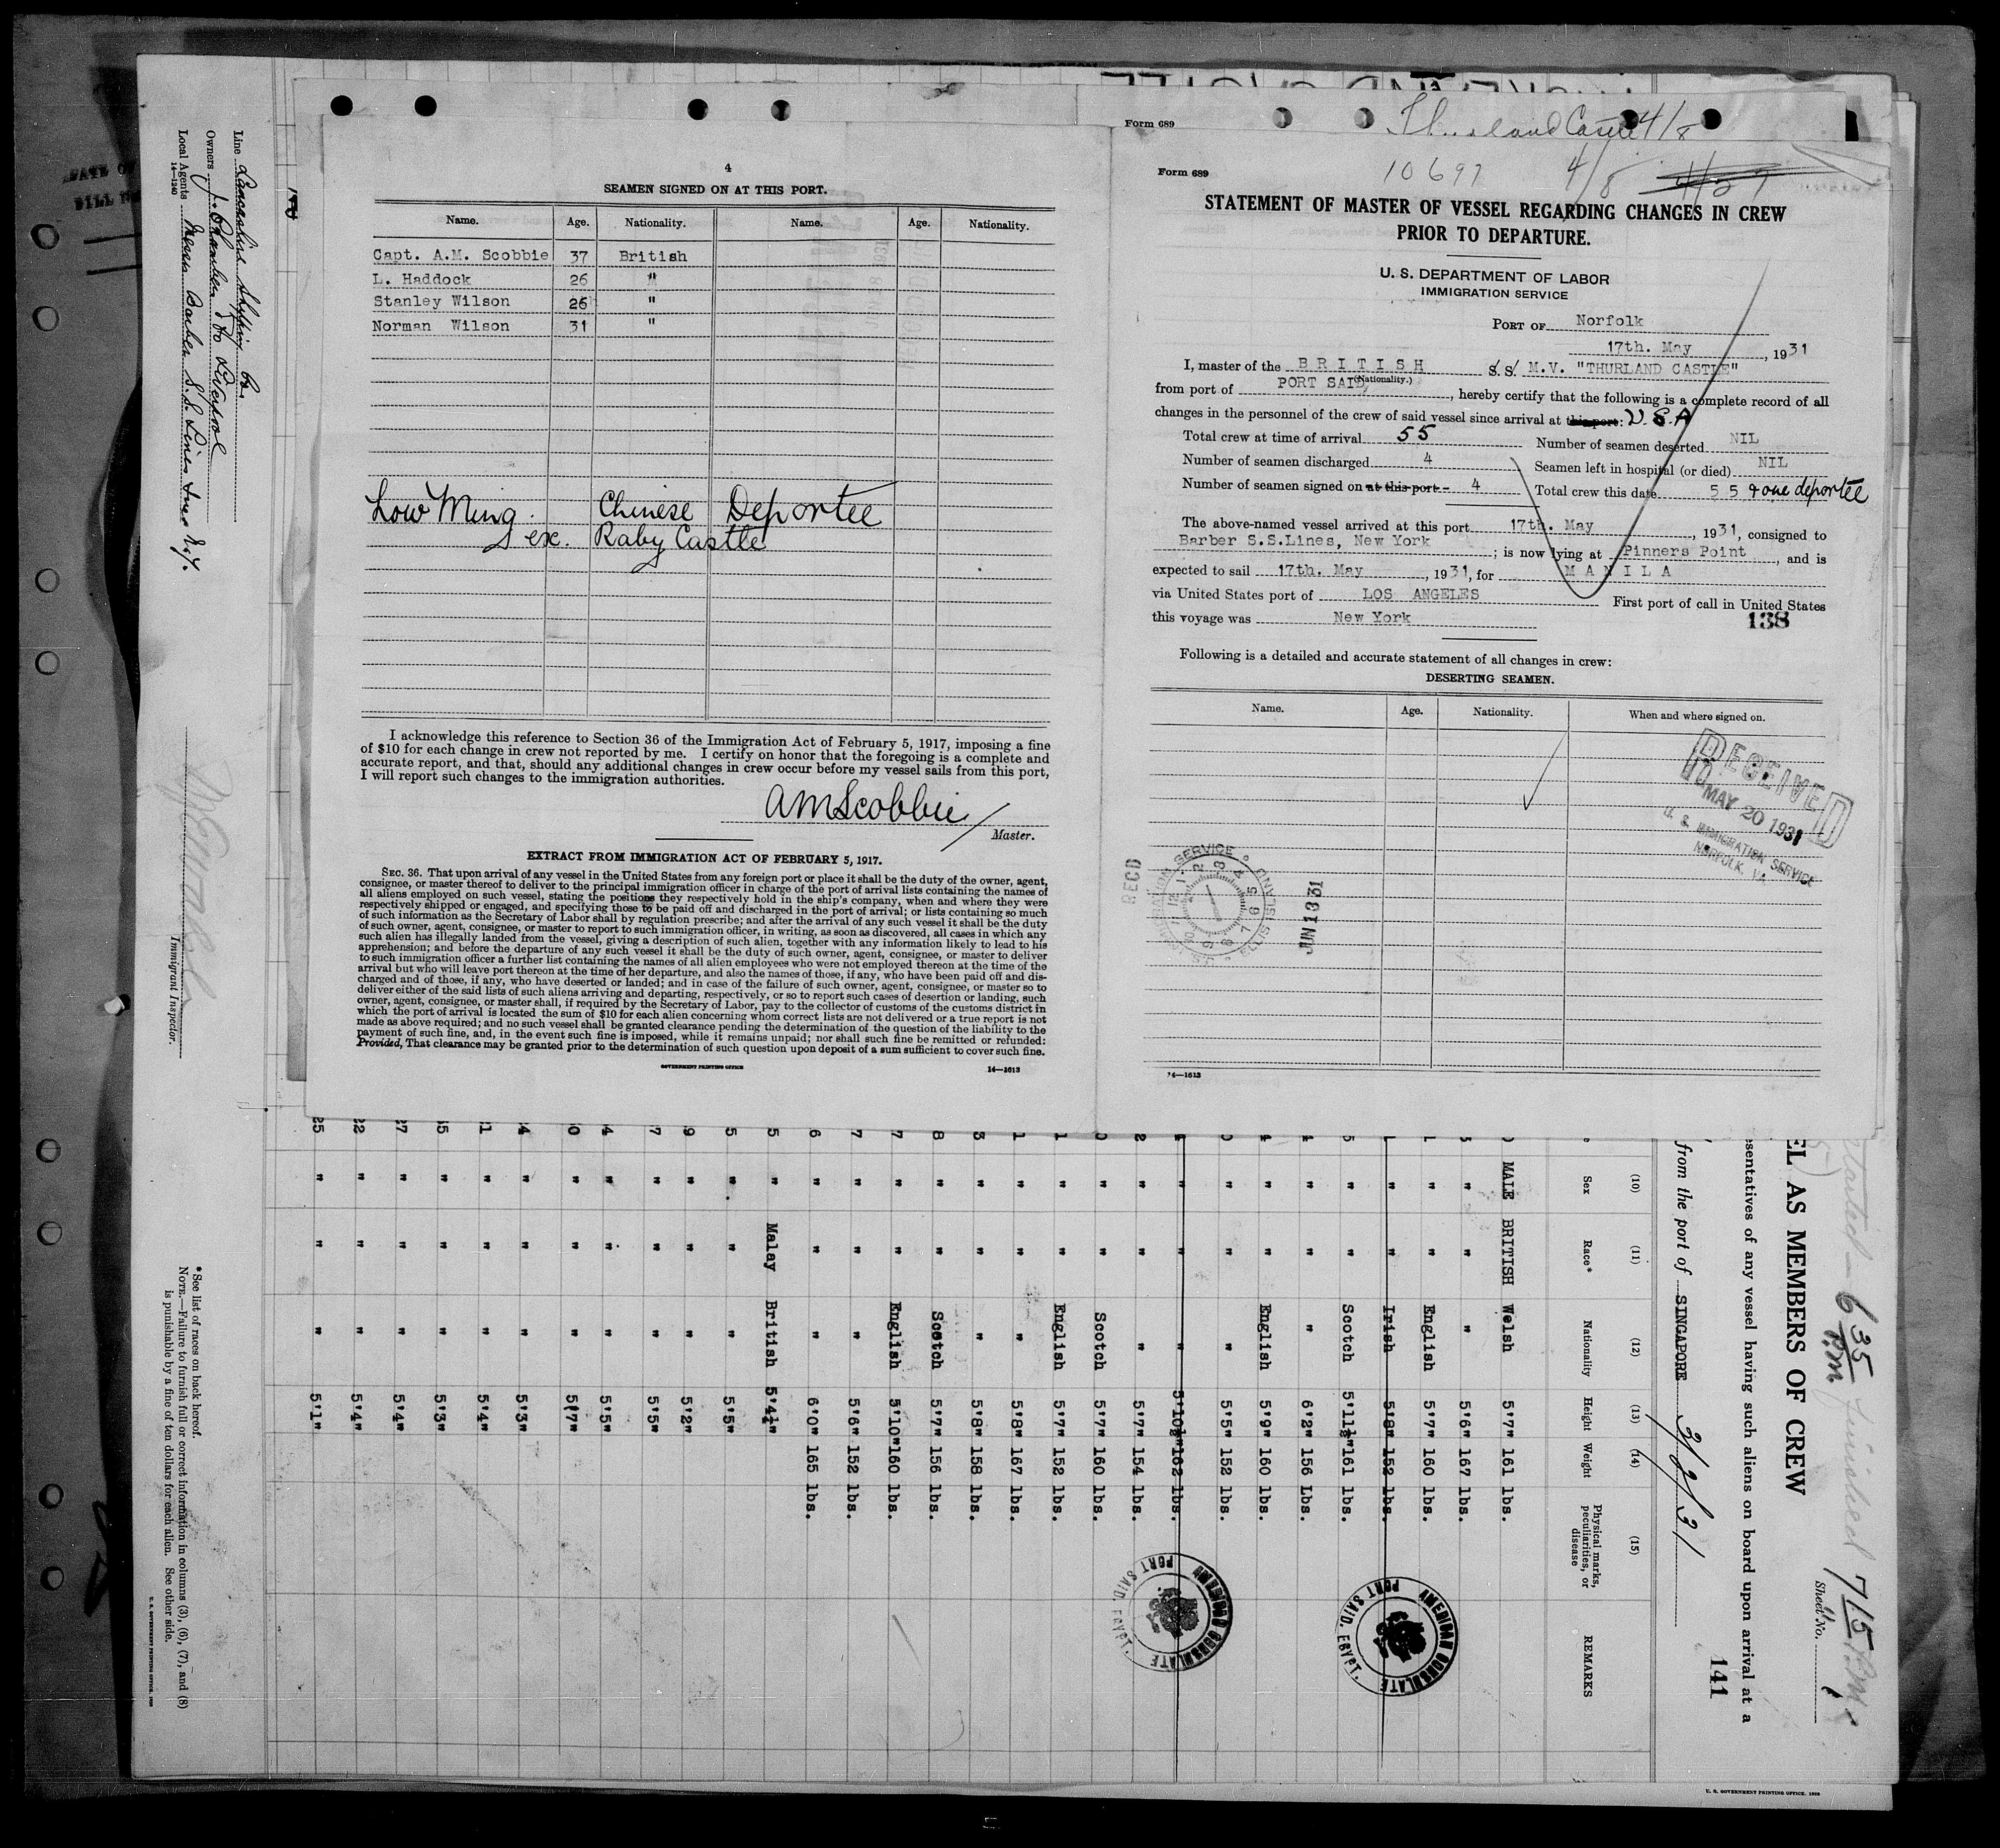 4
SEAMEN SIGNED ON AT THIS PORT.
Name. Age. Nationality. Name. Age. Nationality.
Capt. A.M. Scobbie 37 British
L. Haddock 26 "
Stanley Wilson 26 "
Norman Wilson 31 "
Low Ming. Chinese Deportee
ex. Raby Castle
I acknowledge this reference to Section 36 of the Immigration Act of February 5, 1917, imposing a fine
of $10 for each change in crew not reported by me. I certify on honor that the foregoing is a complete and
accurate report, and that, should any additional changes in crew occur before my vessel sails from this port,
I will report such changes to the immigration authorities.
AMScobbie
Master.
EXTRACT FROM IMMIGRATION ACT OF FEBRUARY 5, 1917.
SEC. 36. That upon arrival of any vessel in the United States from any foreign port or place it shall be the duty of the owner, agent,
consignee, or master thereof to deliver to the principal immigration officer in charge of the port of arrival lists containing the names of
all aliens employed on such vessel, stating the positions they respectively hold in the ship's company, when and where they were
respectively shipped or engaged, and specifying those to be paid off and discharged in the port of arrival; or lists containing so much
of such information as the Secretary of Labor shall by regulation prescribe; and after the arrival of any such vessel it shall be the duty
of such owner, agent, consignee, or master to report to such immigration officer, in writing, as soon as discovered, all cases in which any
such alien has illegally landed from the vessel, giving a description of such alien, together with any information likely to lead to his
apprehension; and before the departure of any such vessel it shall be the duty of such owner, agent, consignee, or master to deliver
to such immigration officer a further list containing the names of all alien employees who were not employed thereon at the time of the
arrival but who will leave port thereon at the time of her departure, and also the names of those, if any, who have been paid off and dis-
charged and of those, if any, who have deserted or landed; and in case of the failure of such owner, agent, consignee, or master so to
deliver either of the said lists of such aliens arriving and departing, respectively, or so to report such cases of desertion or landing, such
owner, agent, consignee, or master shall, if required by the Secretary of Labor, pay to the collector of customs of the customs district in
which the port of arrival is located the sum of $10 for each alien concerning whom correct lists are not delivered or a true report is not
made as above required; and no such vessel shall be granted clearance pending the determination of the question of the liability to the
payment of such fine, and, in the event such fine is imposed, while it remains unpaid; nor shall such fine be remitted or refunded:
Provided, That clearance may be granted prior to the determination of such question upon deposit of a sum sufficient to cover such fine.
GOVERNMENT PRINTING OFFICE 14—1613
Form 689 Thurland Castle 4/8
Form 689 10697 4/8
STATEMENT OF MASTER OF VESSEL REGARDING CHANGES IN CREW
PRIOR TO DEPARTURE.
U. S. DEPARTMENT OF LABOR
IMMIGRATION SERVICE
PORT OF Norfolk
17th. May, 1931
I, master of the BRITISH S.S. M.V. "THURLAND CASTLE"
(Nationality.)
from port of PORT SAID, hereby certify that the following is a complete record of all
changes in the personnel of the crew of said vessel since arrival at this port: U.S.A
Total crew at time of arrival 55 Number of seamen deserted NIL
Number of seamen discharged 4 Seamen left in hospital (or died) NIL
Number of seamen signed on at this port 4 Total crew this date 55 & one deportee
The above-named vessel arrived at this port 17th. May, 1931, consigned to
Barber S.S.Lines, New York; is now lying at Pinners Point, and is
expected to sail 17th. May, 1931, for MANILA
via United States port of LOS ANGELES First port of call in United States
this voyage was New York 138
Following is a detailed and accurate statement of all changes in crew:
DESERTING SEAMEN.
Name. Age. Nationality. When and where signed on.
RECEIVED
MAY 20 1931
U. S. IMMIGRATION SERVICE
NORFOLK, VA.
RECD
ELLIS ISLAND
JUN 1 1931
14—1613
Line Lancashire Shipping Co.
Owners J. Chambers & Co Liverpool
Local Agents Messrs Barber S.S. Lines Inc N.Y.
14—1240
Immigrant Inspector.
* See list of races on back hereof.
NOTE.—Failure to furnish full or correct information in columns (3), (6), (7), and (8)
is punishable by a fine of ten dollars for each alien. See other side.
U. S. GOVERNMENT PRINTING OFFICE
started 6 35 P.M. finished 7/15 P.M.
Sheet No. 1
EL AS MEMBERS OF CREW
esentatives of any vessel having such aliens on board upon arrival at a
from the port of SINGAPORE 3/2/31
141
(10) (11) (12) (13) (14) (15)
Sex Race* Nationality Height Weight Physical marks, peculiarities, or disease REMARKS
MALE BRITISH Welsh 5'7" 161 lbs.
" " " 5'6" 167 lbs.
" " English 5'7" 160 lbs.
" " Irish 5'8" 152 lbs.
" " Scotch 5'11½" 161 lbs.
" " " 6'2" 156 Lbs.
" " English 5'9" 160 lbs.
" " " 5'5" 152 lbs.
" " " 5'10½" 162 lbs.
" " " 5'7" 154 lbs.
" " Scotch 5'7" 160 lbs.
" " English 5'7" 152 lbs.
" " " 5'8" 167 lbs.
" " " 5'8" 158 lbs.
" " Scotch 5'7" 156 lbs.
" " English 5'10" 160 lbs.
" " " 5'6" 152 lbs.
" " " 6'0" 165 lbs.
" Malay British 5'4½"
" " " 5'5"
" " " 5'2"
" " " 5'5"
" " " 5'5"
" " " 5'7"
" " " 5'3"
" " " 5'4"
" " " 5'3"
" " " 5'4"
" " " 5'4"
" " " 5'1"
AMERICAN CONSULATE
PORT SAID, EGYPT.
AMERICAN CONSULATE
PORT SAID, EGYPT.
U. S. GOVERNMENT PRINTING OFFICE